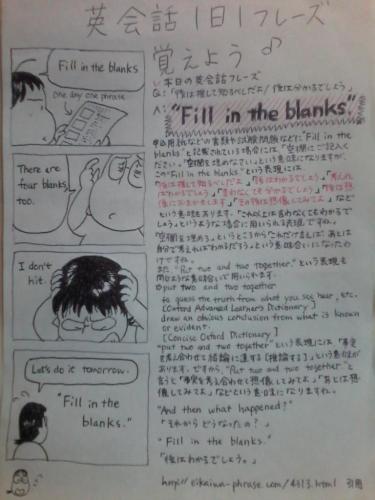 英会話1日1フレーズ
覚えよう♪
Fill in the blanks
one day one phrase
There are
four blanks,
too.
I don't
hit.
Let's do it tomorrow.
"Fill in the
blanks."
本日の英会話フレーズ
Q:「後は推して知るべしだよ/後は分かるでしょう」
A: "Fill in the blanks."
申込用紙などの書類や試験問題などに"Fill in the
blanks"と記載されている場合には「空欄にご記入く
ださい」「空欄を埋めなさい」という意味になりますが、
この"Fill in the blanks"という表現には、
「後は推して知るべしだよ」「後はわかるでしょう」
など
という意味もあります。「これ以上は言わなくてもわかるで
しょう」というような場合に用いられる表現ですね。
「空欄を埋めろ」というところから「これだけ言えば、あとは
自分で考えればわかるだろう」という意味合いになったわ
けですね。
また、"Put two and two together."という表現も
同じような意味合いで用いられます。
put two and two together
to guess the truth from what you see, hear, etc.
[Oxford Advanced Learner's Dictionary]
draw an obvious conclusion from what is known
or evident.
[Concise Oxford Dictionary]
"put two and two together"という表現には、「事実
を考え合わせて結論に達する[推論する]」という意味が
あります。ですから、"Put two and two together."と
言うと「事実を考え合わせて想像してみてよ」「あとは想
像してみてよ」などという意味になりますね。
"And then what happened?"
「それからどうなったの?」
"Fill in the blanks."
「後はわかるでしょう。」
http://eikaiwa-phrase.com/4313.html 引用